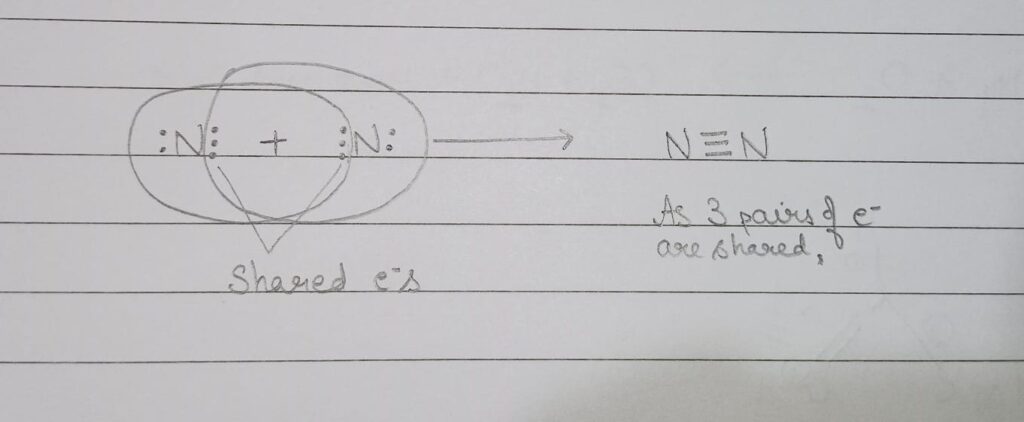 :N⋮ + ⋮N: → N≡N
Shared e⁻s
As 3 pairs of e⁻
are shared,